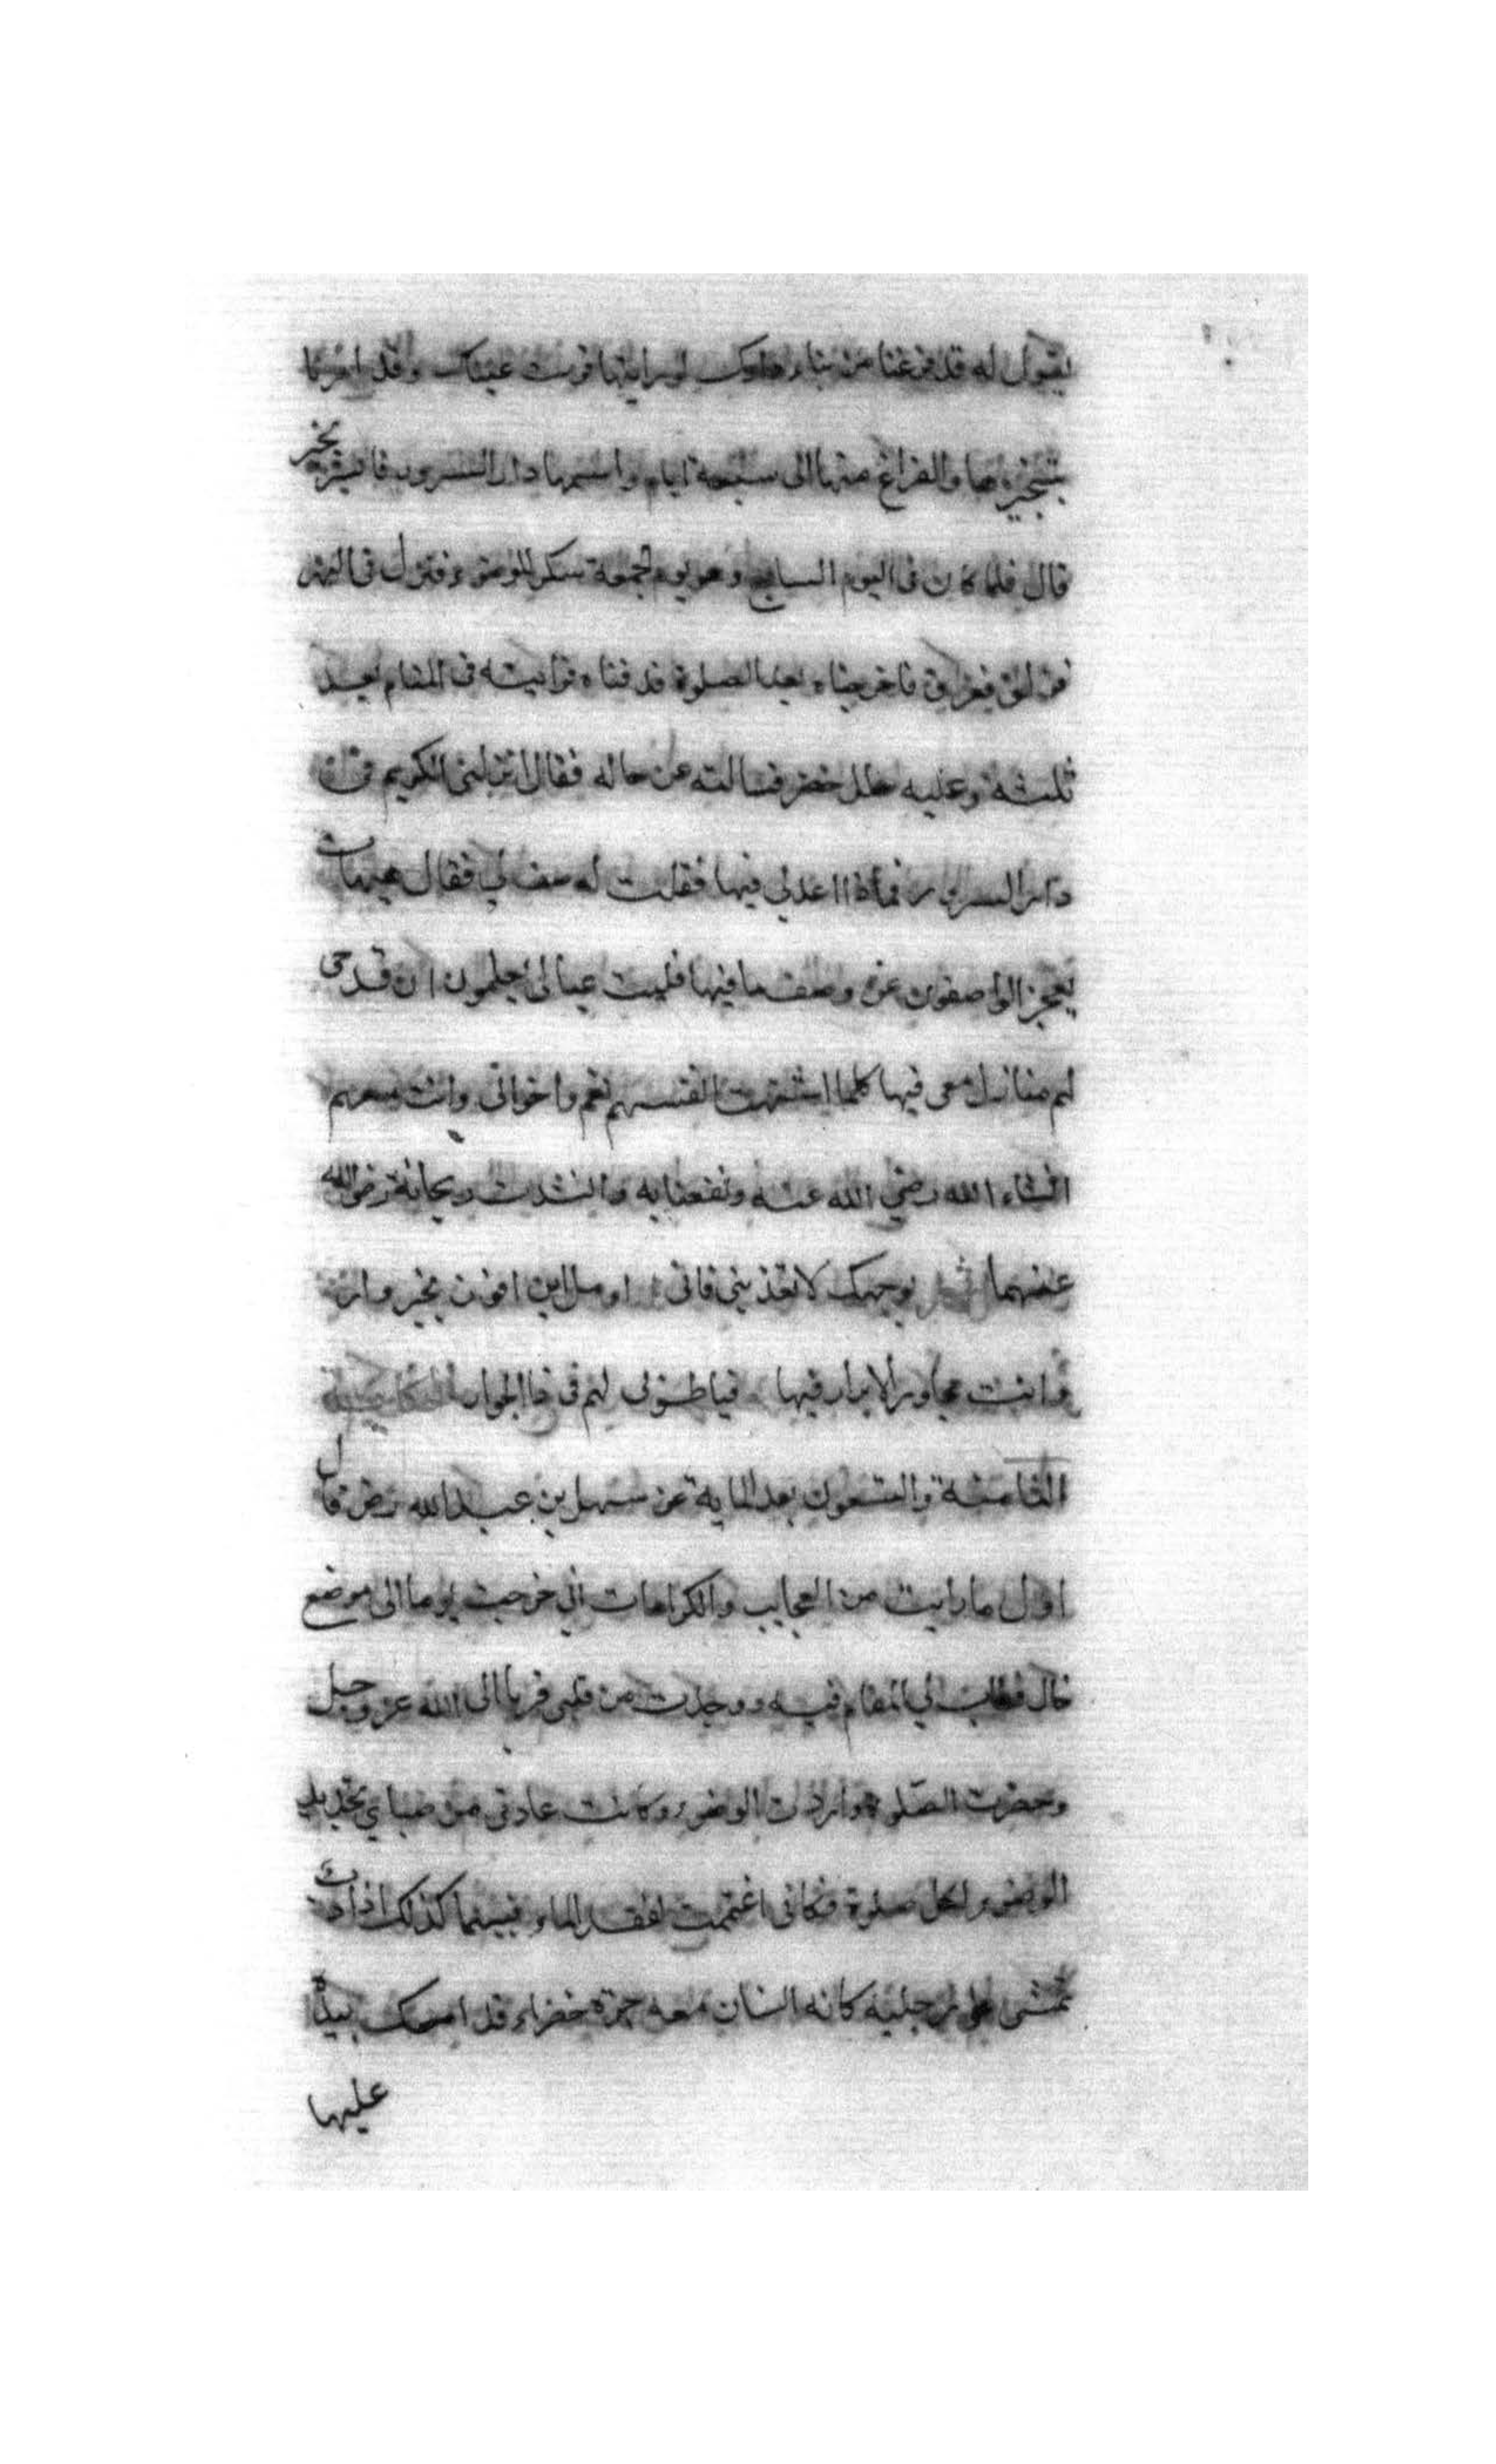 يقول له قد فرغنا من بناء دارك لو رايتها قرت عيناك وقد امرنا
بتنجيزها والفراغ منها الى سبعة ايام واسمها دار السرور فابشر بخير
قال فلما كان فى اليوم السابع وهو يوم الجمعة بكر للوضوء فنزل فى النهر
فزلق فغرق فاخرجناه بعد الصلوة فدفناه فرايته فى المنام بعد
ثلثة وعليه حلل خضر فسالته عن حاله فقال انزلنى الكريم فى
دار السرور فماذا اعد لي فيها فقلت له صف لي فقال هيهات
يعجز الواصفون عن وصف ما فيها فليت عيالى يعلمون ان قد هى
لهم منازل معى فيها كلما اشتهت انفسهم نعم واخوانى وانت معهم
انشاء الله رضي الله عنه ونفعنا به وانشدت ريحانة رضى الله
عنهما شعر بوجهك لا تعذبنى فانى اومل ان افوز بخير دار
وانت مجاور الابرار فيها فياطوبى لهم فى ذا الجوار الحكاية
الثامنة والتسعون بعد الماية عن سهل بن عبد الله رض قال
اول ما رايت من العجايب والكرامات اني خرجت يوما الى موضع
خال فطاب لي المقام فيه ووجدت من قلبى قربا الى الله عز وجل
وحضرت الصلوة واردت الوضوء وكانت عادتى من صباي تجديد
الوضوء لكل صلوة فكانى اغتممت لفقد الماء فبينما كذلك اذا دب
تمشى على رجليه كانه انسان معه جرة خضراء قد امسك بيده
عليها